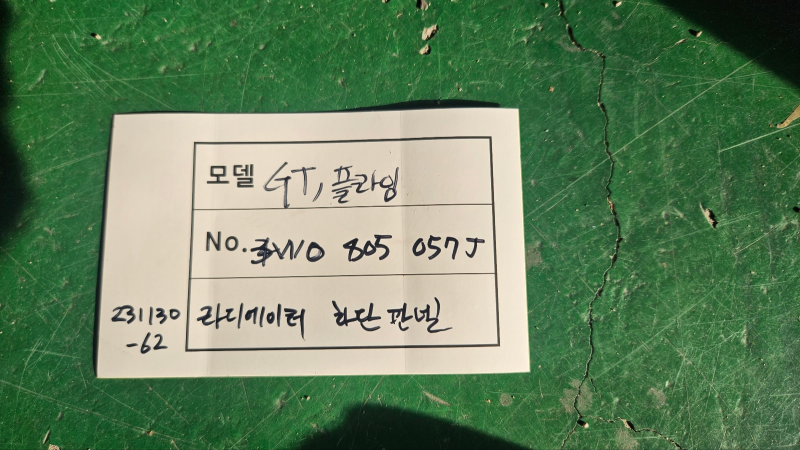 모델 GT, 플라잉
No. 3W0 805 057 J
라디에이터 하단 판넬
231130
-62